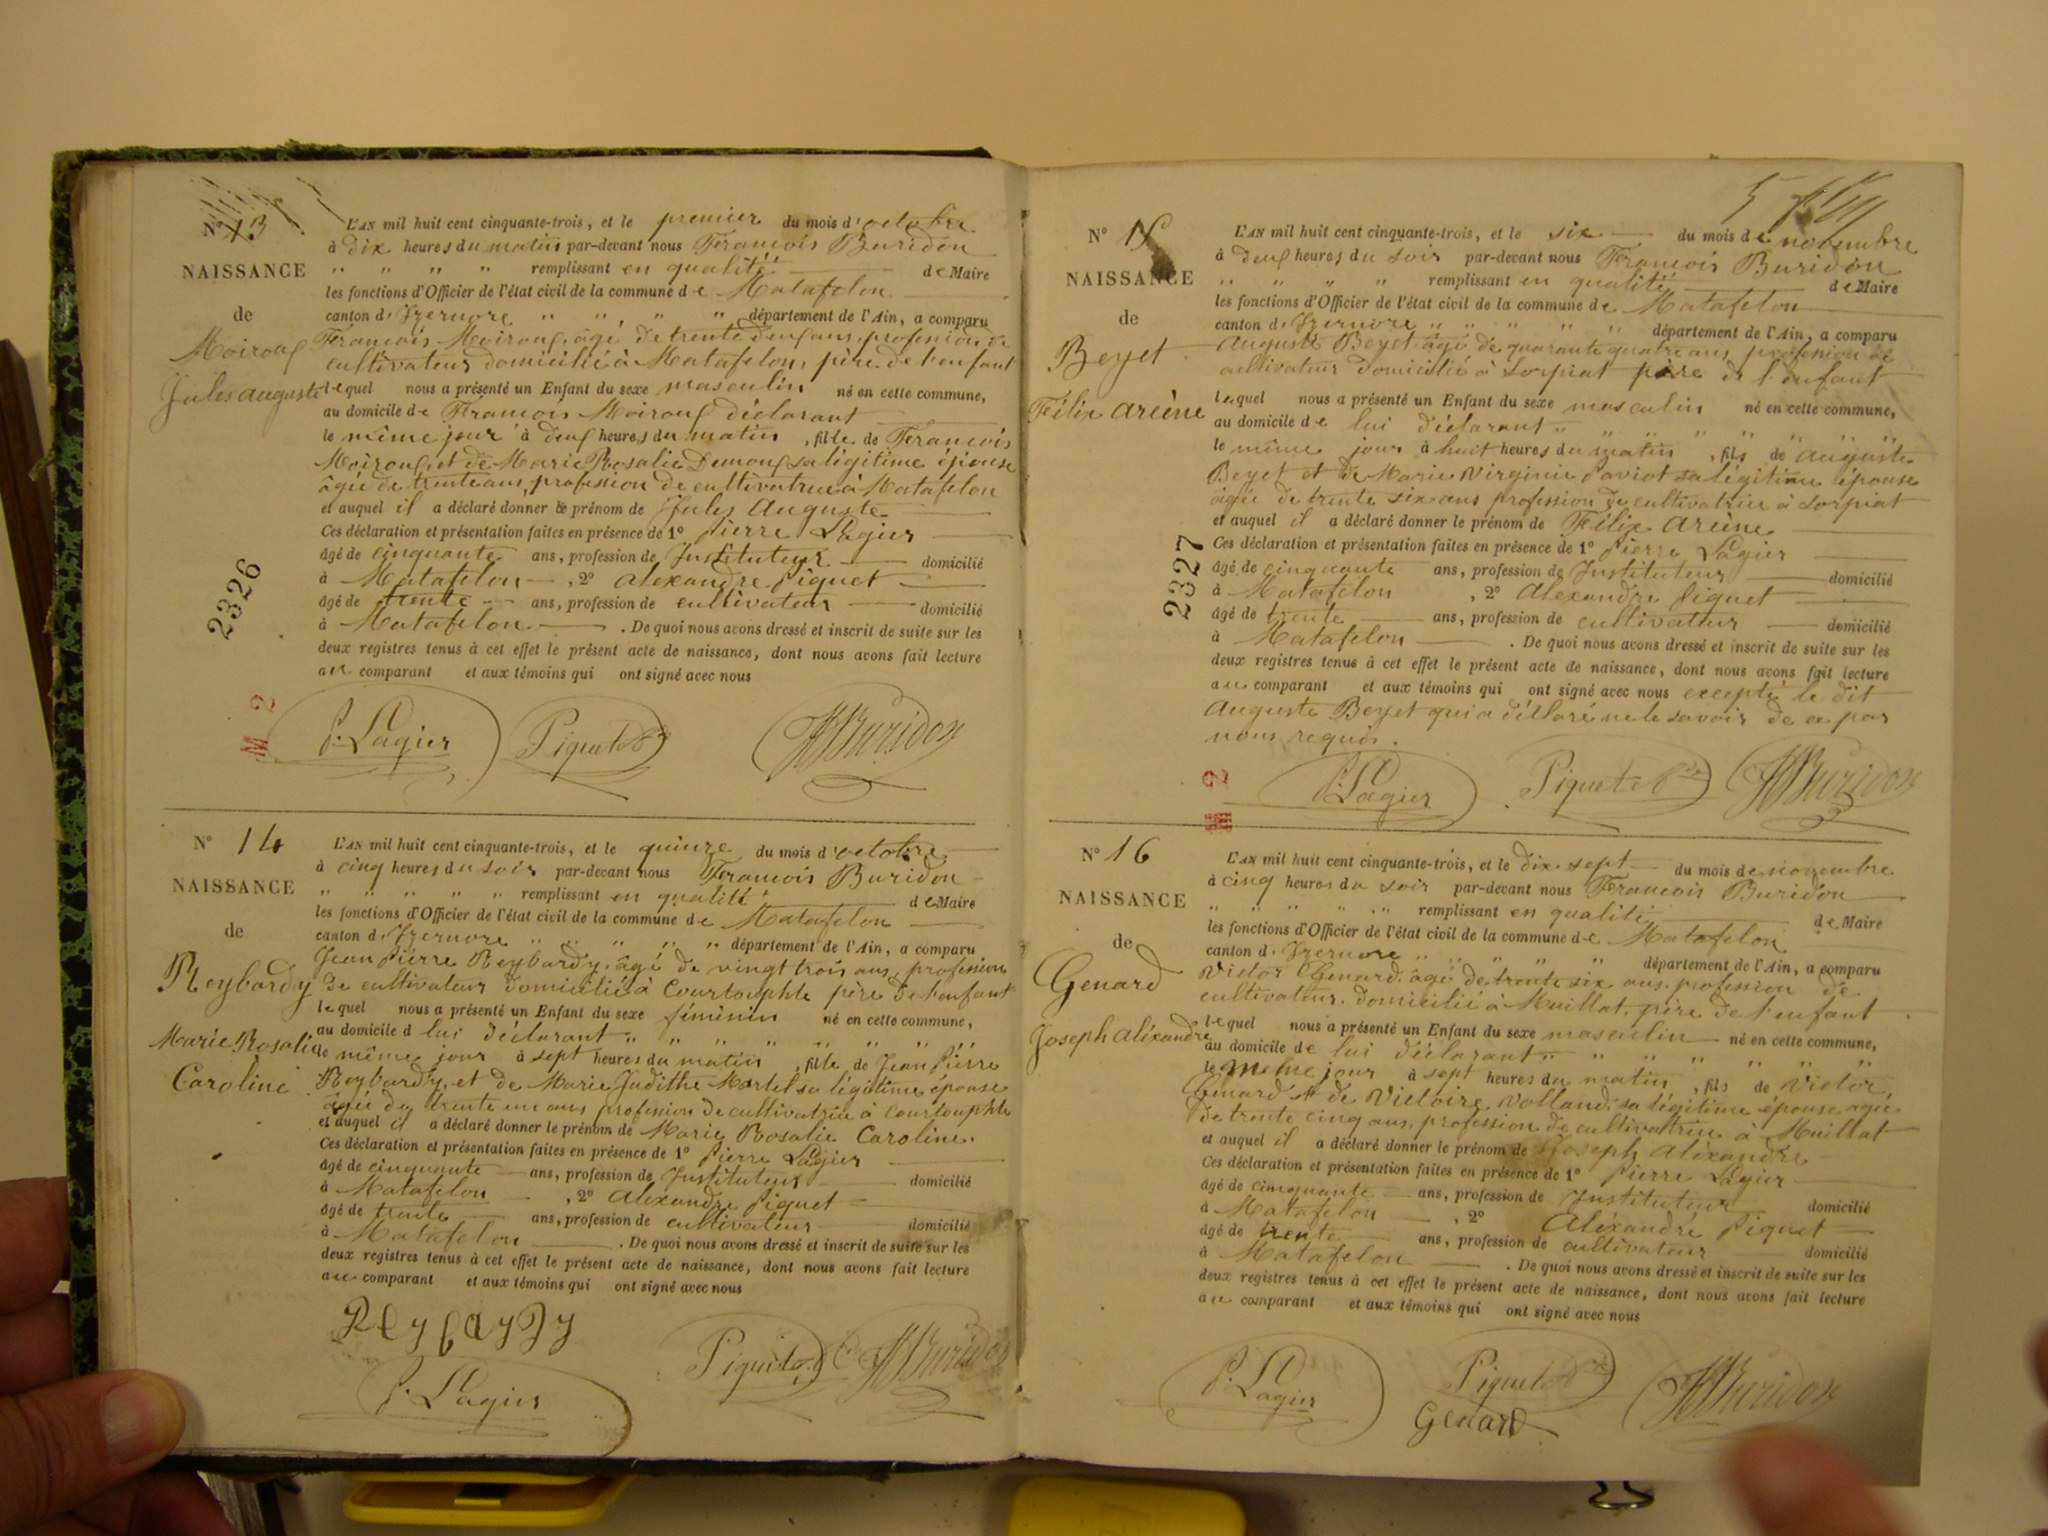 N° 13
NAISSANCE
de
Moiroux
Jules Auguste
L'AN mil huit cent cinquante-trois, et le premier du mois d'octobre
à dix heures du matin par-devant nous François Buridon
" " " " remplissant en qualité de Maire
les fonctions d'Officier de l'état civil de la commune de Matafelon
canton d'Izernore " " " " département de l'Ain, a comparu
François Moiroux, âgé de trente deux ans, profession de
cultivateur domicilié à Matafelon, père de l'enfant
lequel nous a présenté un Enfant du sexe masculin né en cette commune,
au domicile de François Moiroux déclarant
le même jour à deux heures du matin, fils de François
Moiroux, et de Marie Rosalie Demoux sa légitime épouse
âgée de trente ans, profession de cultivatrice à Matafelon
et auquel il a déclaré donner le prénom de Jules Auguste
Ces déclaration et présentation faites en présence de 1° Pierre Lagier
âgé de cinquante ans, profession de Instituteur domicilié
à Matafelon, 2° Alexandre Piquet
âgé de trente ans, profession de cultivateur domicilié
à Matafelon. De quoi nous avons dressé et inscrit de suite sur les
deux registres tenus à cet effet le présent acte de naissance, dont nous avons fait lecture
au comparant et aux témoins qui ont signé avec nous
P. Lagier Piquet Buridon
2326
M 2
N° 14
NAISSANCE
de
Reybardy
Marie Rosalie
Caroline
L'AN mil huit cent cinquante-trois, et le quinze du mois d'octobre
à cinq heures du soir par-devant nous François Buridon
" " " " " remplissant en qualité de Maire
les fonctions d'Officier de l'état civil de la commune de Matafelon
canton d'Izernore " " " " département de l'Ain, a comparu
Jean Pierre Reybardy, âgé de vingt trois ans, profession
de cultivateur domicilié à Courtouphle père de l'enfant
lequel nous a présenté un Enfant du sexe féminin né en cette commune,
au domicile d lui déclarant " " " " " "
le même jour à sept heures du matin, fille de Jean Pierre
Reybardy, et de Marie Judithe Martel sa légitime épouse
âgée de trente un ans profession de cultivatrice à Courtouphle
et auquel il a déclaré donner le prénom de Marie Rosalie Caroline.
Ces déclaration et présentation faites en présence de 1° Pierre Lagier
âgé de cinquante ans, profession de Instituteur domicilié
à Matafelon, 2° Alexandre Piquet
âgé de trente ans, profession de cultivateur domicilié
à Matafelon. De quoi nous avons dressé et inscrit de suite sur les
deux registres tenus à cet effet le présent acte de naissance, dont nous avons fait lecture
au comparant et aux témoins qui ont signé avec nous
Reybardy
Piquet Buridon
P. Lagier
N° 15
NAISSANCE
de
Beyet
Félix Arcène
L'AN mil huit cent cinquante-trois, et le six du mois de novembre
à deux heures du soir par-devant nous François Buridon
" " " " remplissant en qualité de Maire
les fonctions d'Officier de l'état civil de la commune de Matafelon
canton d'Izernore " " " " département de l'Ain, a comparu
Auguste Beyet âgé de quarante quatre ans profession de
cultivateur domicilié à Corpiat père de l'enfant
lequel nous a présenté un Enfant du sexe masculin né en cette commune,
au domicile de lui déclarant " " " " " "
le même jour à huit heures du matin, fils de Auguste
Beyet et de Marie Virginie Paviot sa légitime épouse
âgée de trente six ans profession de cultivatrice à Corpiat
et auquel il a déclaré donner le prénom de Félix Arcène
Ces déclaration et présentation faites en présence de 1° Pierre Lagier
âgé de cinquante ans, profession de Instituteur domicilié
à Matafelon, 2° Alexandre Piquet
âgé de trente ans, profession de cultivateur domicilié
à Matafelon. De quoi nous avons dressé et inscrit de suite sur les
deux registres tenus à cet effet le présent acte de naissance, dont nous avons fait lecture
au comparant et aux témoins qui ont signé avec nous excepté le dit
Auguste Beyet qui a déclaré ne le savoir de ce par
nous requis.
P. Lagier Piquet Buridon
2327
M 2
N° 16
NAISSANCE
de
Genard
Joseph Aléxandre
L'AN mil huit cent cinquante-trois, et le dix sept du mois de novembre
à cinq heures du soir par-devant nous François Buridon
" " " " " remplissant en qualité de Maire
les fonctions d'Officier de l'état civil de la commune de Matafelon
canton d'Izernore " " " " département de l'Ain, a comparu
Victor Genard, âgé de trente six ans, profession de
cultivateur, domicilié à Muillat, père de l'enfant
lequel nous a présenté un Enfant du sexe masculin né en cette commune,
au domicile de lui déclarant " " " " " "
le même jour à sept heures du matin, fils de Victor
Genard et de Victoire Volland, sa légitime épouse âgée
de trente cinq ans, profession de cultivatrice à Muillat
et auquel il a déclaré donner le prénom de Joseph Aléxandre
Ces déclaration et présentation faites en présence de 1° Pierre Lagier
âgé de cinquante ans, profession de Instituteur domicilié
à Matafelon, 2° Aléxandre Piquet
âgé de trente ans, profession de cultivateur domicilié
à Matafelon. De quoi nous avons dressé et inscrit de suite sur les
deux registres tenus à cet effet le présent acte de naissance, dont nous avons fait lecture
au comparant et aux témoins qui ont signé avec nous
P. Lagier Piquet Buridon
Genard